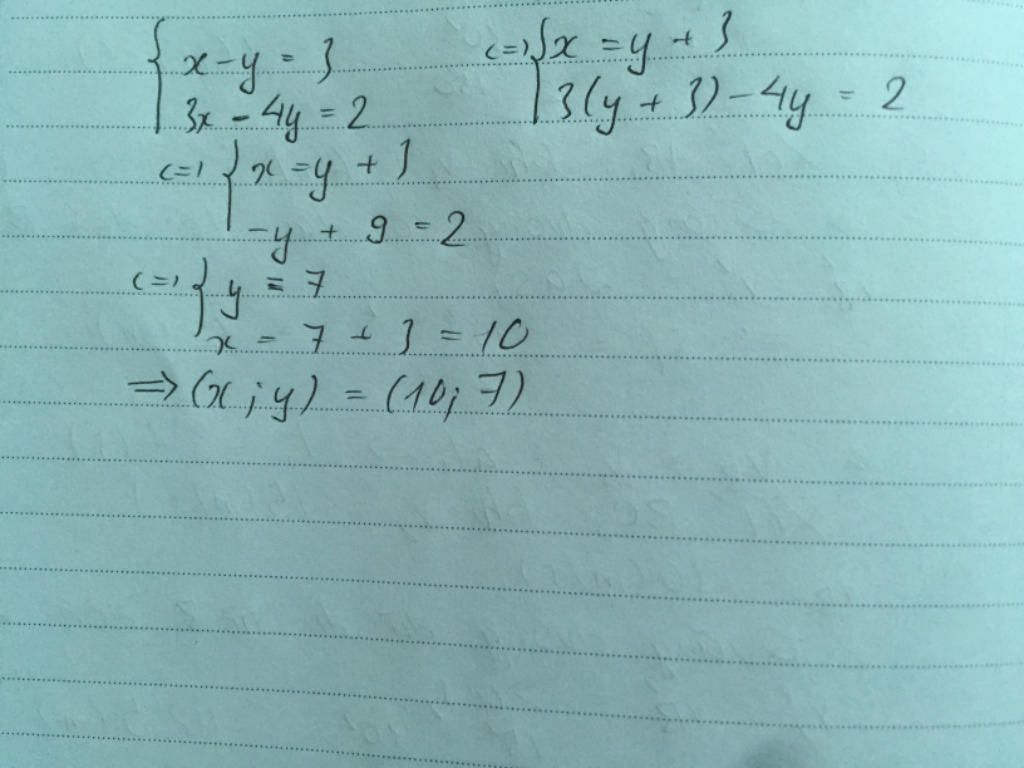 { x - y = 3 (=) { x = y + 3
3x - 4y = 2 3(y + 3) - 4y = 2
(=) { x = y + 3
-y + 9 = 2
(=) { y = 7
x = 7 + 3 = 10
=> (x; y) = (10; 7)